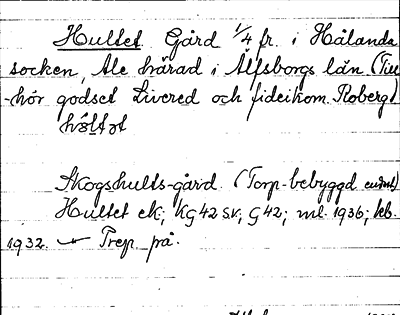 Hultet Gård 1/4 fr. i Hålanda
socken, Ale härad i Älfsborgs län (Till-
-hör godset Livered och fideikom. Roberg)
hö̀ltət
Skogshults-gård. (Torp-bebyggd endast)
Hultet ek; KG 42 sv; G 42; ml. 1936; kb.
1932. Prep. på.